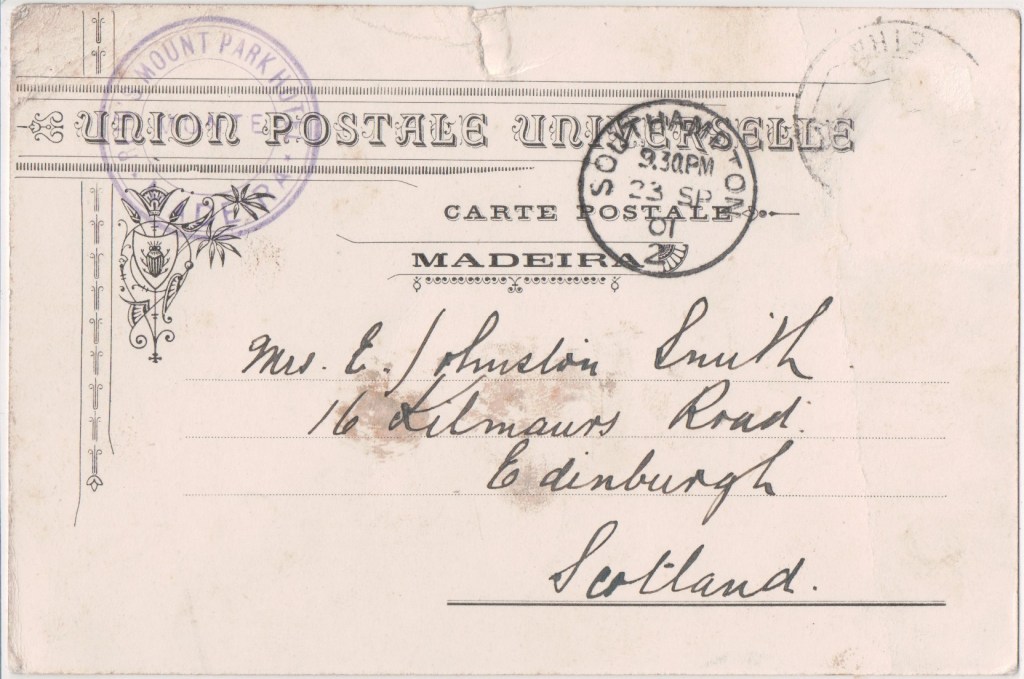 MOUNT PARK HOTEL
MADEIRA
SHIP
UNION POSTALE UNIVERSELLE
SOUTHAMPTON
9.30PM
23 SP
01
2
CARTE POSTALE
MADEIRA
Mrs. E. Johnston Smith.
16 Kilmaurs Road.
Edinburgh
Scotland.